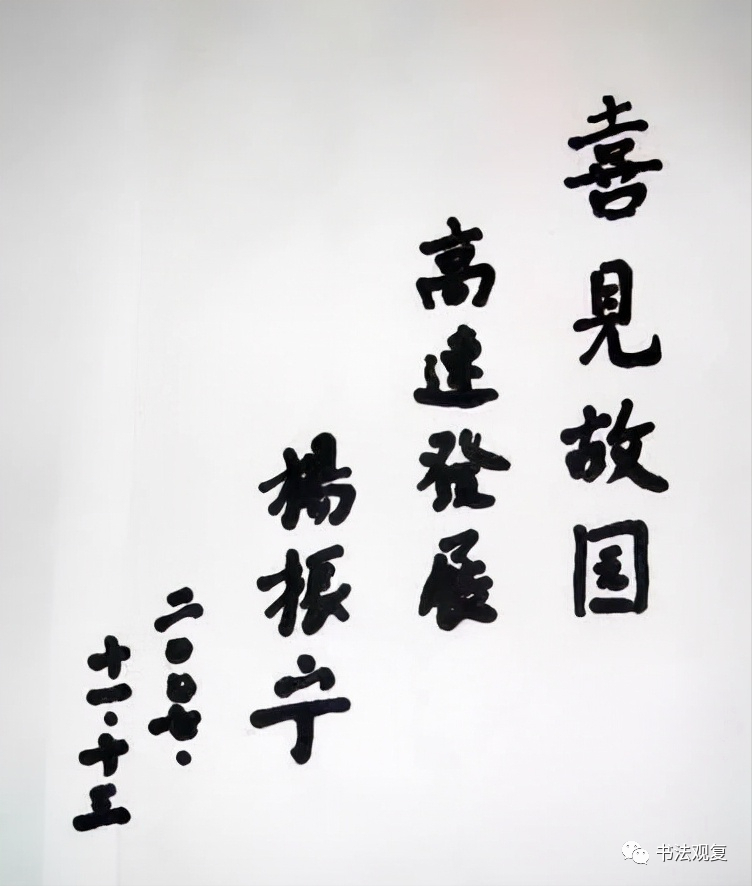 喜見故国
高速發展
楊振宁
二〇〇七·
十一·十三
书法观复